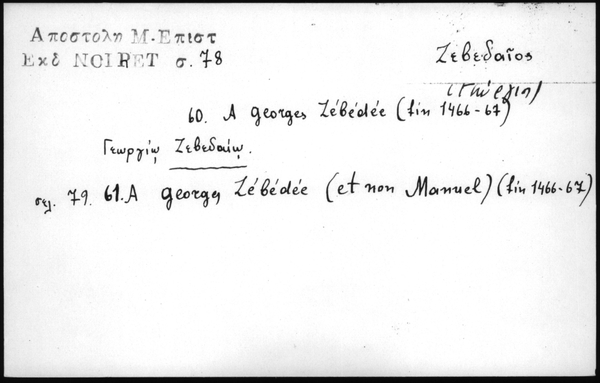 Αποστολη Μ. Επιστ
Εκδ NOIRET σ. 78
Ζεβεδαῖος
(Γιώργιη)
60. A Georges Zébédée (fin 1466-67)
Γεωργίῳ Ζεβεδαίῳ.
σελ. 79. 61. A Georges Zébédée (et non Manuel) (fin 1466-67)